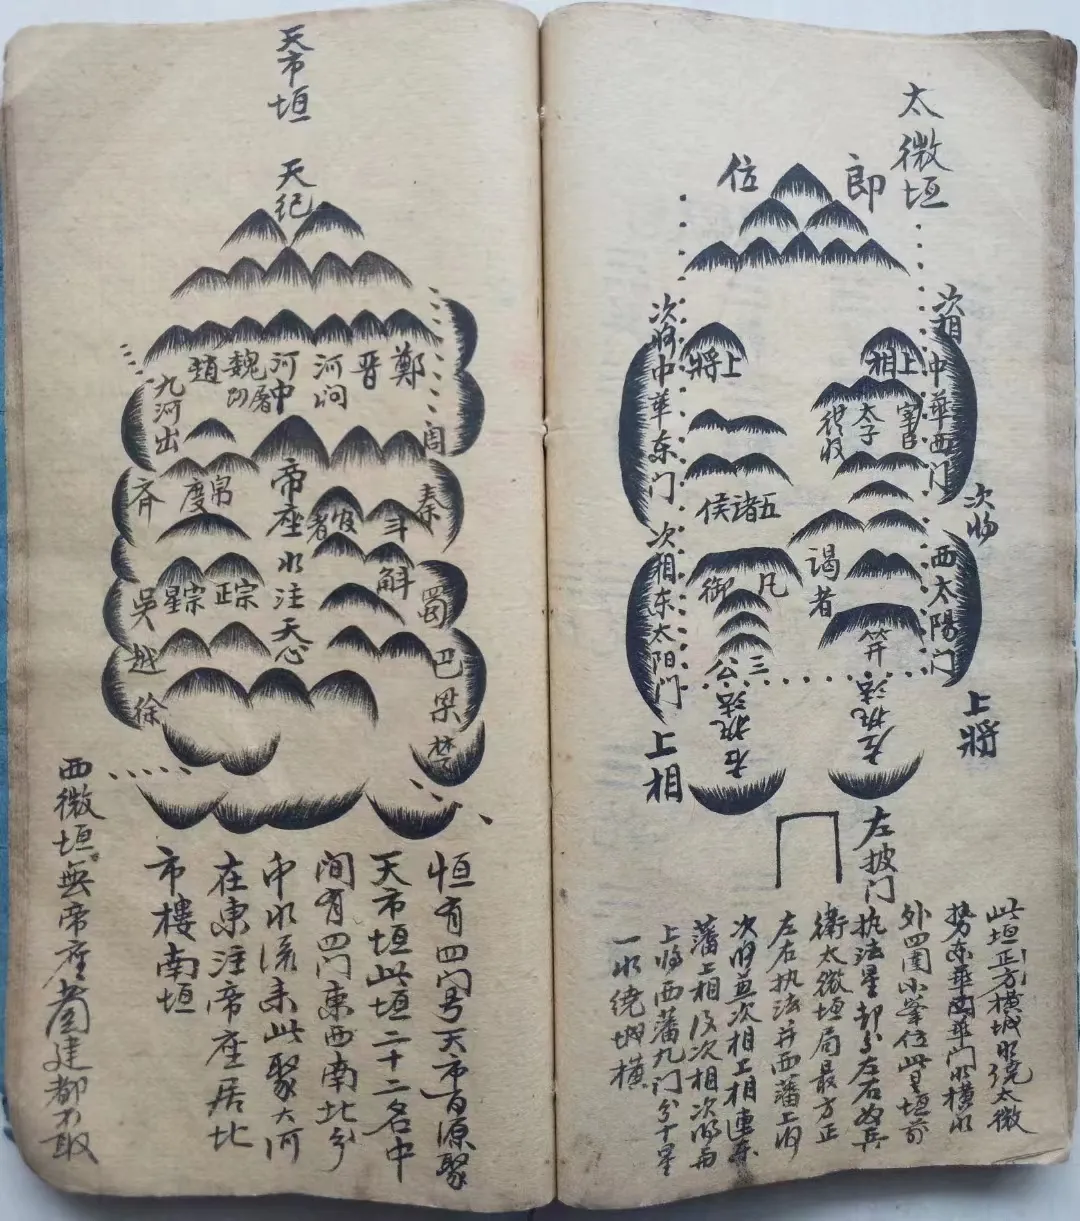 太微垣
郎位
次相
中華西门
次将
西太陽门
上將
次將
中華东门
次相
东太阳门
上相
上將
上相
宦官
太子
五諸侯
谒者
三公
左执法
右执法
左掖门
此垣正方横城水绕太微
势东華西華门水横水
外四围小峯位此是垣前
执法星却分左右为兵
衛太微垣局最方正
左右执法并西藩上将
次将并次相上相連东
藩上相及次相次将与
上将西藩九门分十星
一水绕城横
天市垣
天纪
鄭
晋
河间
河中
魏
趙
九河出
帝座水注天心
帛度
宦者
斗
斛
秦
蜀
巴
梁
楚
齐
吴
越
徐
宗正
宗星
垣有四门号天市百源聚
天市垣此垣二十二名中
间有四门東西南北分
中水流来此聚大河
在東注帝座居北
市樓南垣
西微垣無帝座啚建都不取